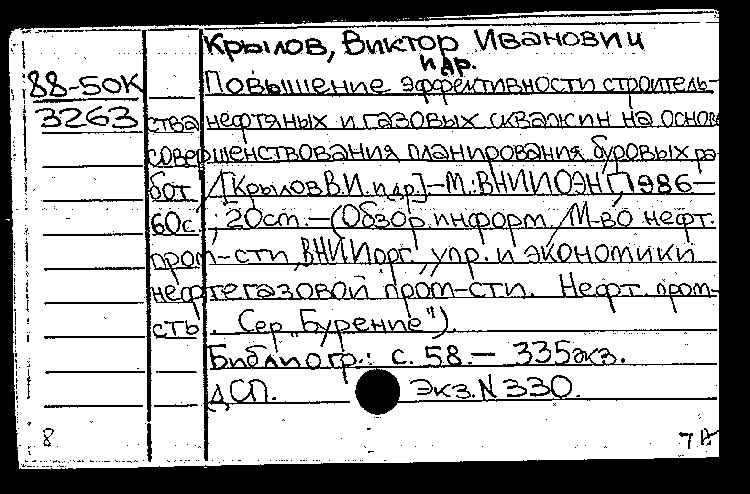 Крылов, Виктор Иванович
и др.
88-50К Повышение эффективности строитель-
3263 ства нефтяных и газовых скважин на основе
совершенствования планирования буровых ра-
бот / [Крылов В.И. и др.] — М.: ВНИИОЭНГ, 1986 —
60с.; 20см. — (Обзор. информ. / М-во нефт.
пром-сти, ВНИИ орг., упр. и экономики
нефтегазовой пром-сти. Нефт. пром-
сть. Сер. „Бурение").
Библиогр.: с. 58. — 335 экз.
ДСП. Экз. N 330.
8